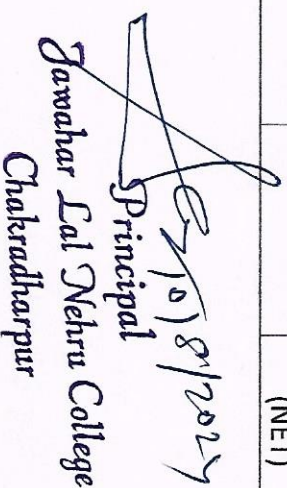 (NET)
10/8/2024
Principal
Jawahar Lal Nehru College
Chakradharpur